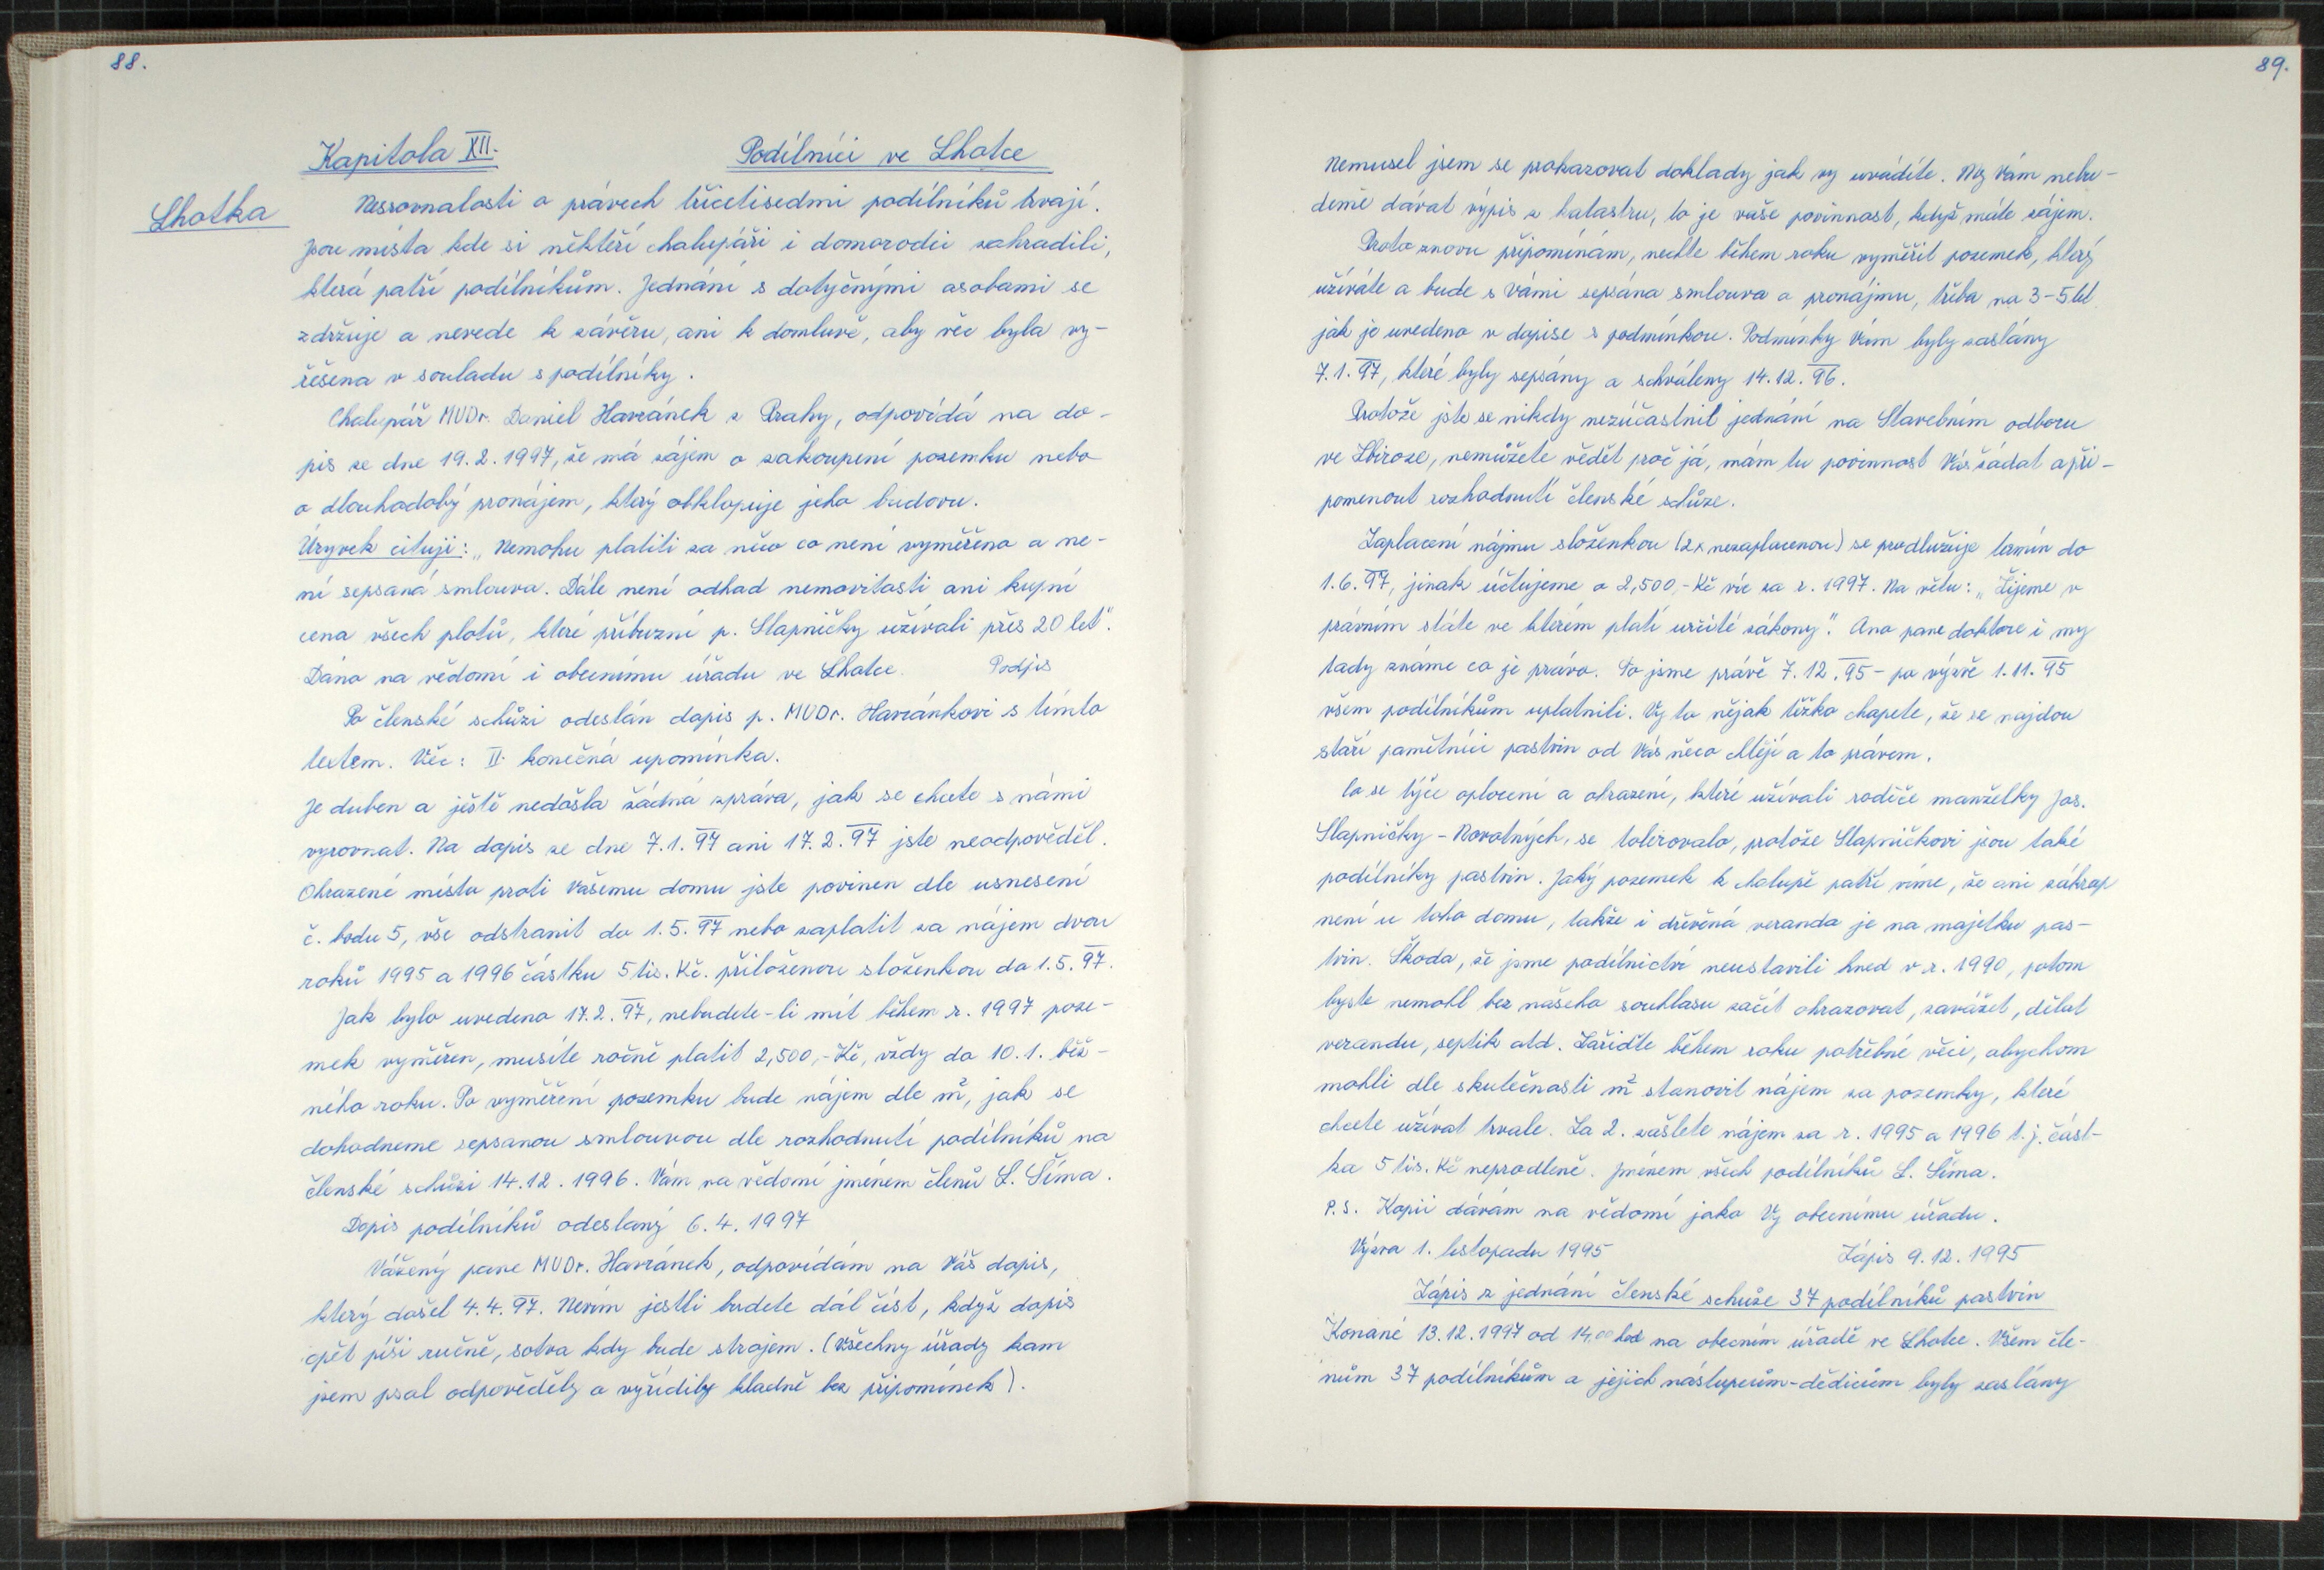 88.
Kapitola XII. Podílníci ve Lhotce
Lhotka
Nesrovnalosti o právech třicetisedmi podílníků trvají.
Jsou místa kde si někteří chalupáři i domorodci zahradili,
která patří podílníkům. Jednání s dotyčnými osobami se
zdržuje a nevede k závěru, ani k domluvě, aby věc byla vy-
řešena v souladu s podílníky.
Chalupář MUDr. Daniel Havránek z Prahy, odpovídá na do-
pis ze dne 19.2.1997, že má zájem o zakoupení pozemku nebo
o dlouhodobý pronájem, který obklopuje jeho budovu.
Úryvek cituji: „Nemohu platiti za něco co není vyměřeno a ne-
ní sepsaná smlouva. Dále není odhad nemovitosti ani kupní
cena všech plotů, které příbuzní p. Slapničky užívali přes 20 let".
Dáno na vědomí i obecnímu úřadu ve Lhotce. Podpis
Po členské schůzi odeslán dopis p. MUDr. Havránkovi s tímto
textem. Věc: II. konečná upomínka.
Je duben a ještě nedošla žádná zpráva, jak se chcete s námi
vyrovnat. Na dopis ze dne 7.1.97 ani 17.2.97 jste neodpověděl.
Ohrazené místo proti Vašemu domu jste povinen dle usnesení
č. bodu 5, vše odstranit do 1.5.97 nebo zaplatit za nájem dvou
roků 1995 a 1996 částku 5 tis. Kč. přiloženou složenkou do 1.5.97.
Jak bylo uvedeno 17.2.97, nebudete-li mít během r. 1997 poze-
mek vyměřen, musíte ročně platit 2,500,- Kč, vždy do 10.1. běž-
ného roku. Po vyměření pozemku bude nájem dle m², jak se
dohodneme sepsanou smlouvou dle rozhodnutí podílníků na
členské schůzi 14.12.1996. Vám na vědomí jménem členů L. Šíma.
Dopis podílníků odeslaný 6.4.1997
Vážený pane MUDr. Havránek, odpovídám na Váš dopis,
který došel 4.4.97. Nevím jestli budete dál číst, když dopis
opět píši ručně, sotva kdy bude strojem. (Všechny úřady kam
jsem psal odpověděly a vyřídily kladně bez připomínek).
89.
Nemusel jsem se prokazovat doklady jak vy uvádíte. My Vám nebu-
deme dávat výpis z katastru, to je vaše povinnost, když máte zájem.
Proto znovu připomínám, nechte během roku vyměřit pozemek, který
užíváte a bude s Vámi sepsána smlouva o pronájmu, třeba na 3-5 let
jak je uvedeno v dopise s podmínkou. Podmínky Vám byly zaslány
7.1.97, které byly sepsány a schváleny 14.12.96.
Protože jste se nikdy nezúčastnil jednání na Stavebním odboru
ve Zbiroze, nemůžete vědět proč já, mám tu povinnost Vás žádat a při-
pomenout rozhodnutí členské schůze.
Zaplacení nájmu složenkou (2x nezaplacenou) se prodlužuje termín do
1.6.97, jinak účtujeme o 2,500,- Kč víc za r. 1997. Na větu: „Žijeme v
právním státě ve kterém platí určité zákony". Ano pane doktore i my
tady známe co je právo. To jsme právě 7.12.95 - po výzvě 1.11.95
všem podílníkům uplatnili. Vy to nějak těžko chapete, že se najdou
staří pamětníci pastvin od Vás něco chtějí a to právem.
Co se týče oplocení a ohrazení, které užívali rodiče manželky Jos.
Slapničky - Novotných, se tolerovalo, protože Slapničkovi jsou také
podílníky pastvin. Jaký pozemek k chalupě patří víme, že ani zákrop
není u toho domu, takže i dřevěná veranda je na majetku pas-
tvin. Škoda, že jsme podílnictví neustavili hned v r. 1990, potom
byste nemohl bez našeho souhlasu začít ohrazovat, zavážet, dělat
verandu, septik atd. Zařiďte během roku potřebné věci, abychom
mohli dle skutečnosti m² stanovit nájem za pozemky, které
chcete užívat trvale. Za 2. zašlete nájem za r. 1995 a 1996 t.j. část-
ka 5 tis. Kč neprodleně. Jménem všech podílníků L. Šíma.
P.S. Kopii dávám na vědomí jako Vy obecnímu úřadu.
Výzva 1. listopadu 1995 Zápis 9.12.1995
Zápis z jednání členské schůze 37 podílníků pastvin
Konané 13.12.1997 od 14.00 hod na obecním úřadě ve Lhotce. Všem čle-
nům 37 podílníkům a jejich nástupcům-dědicům byly zaslány